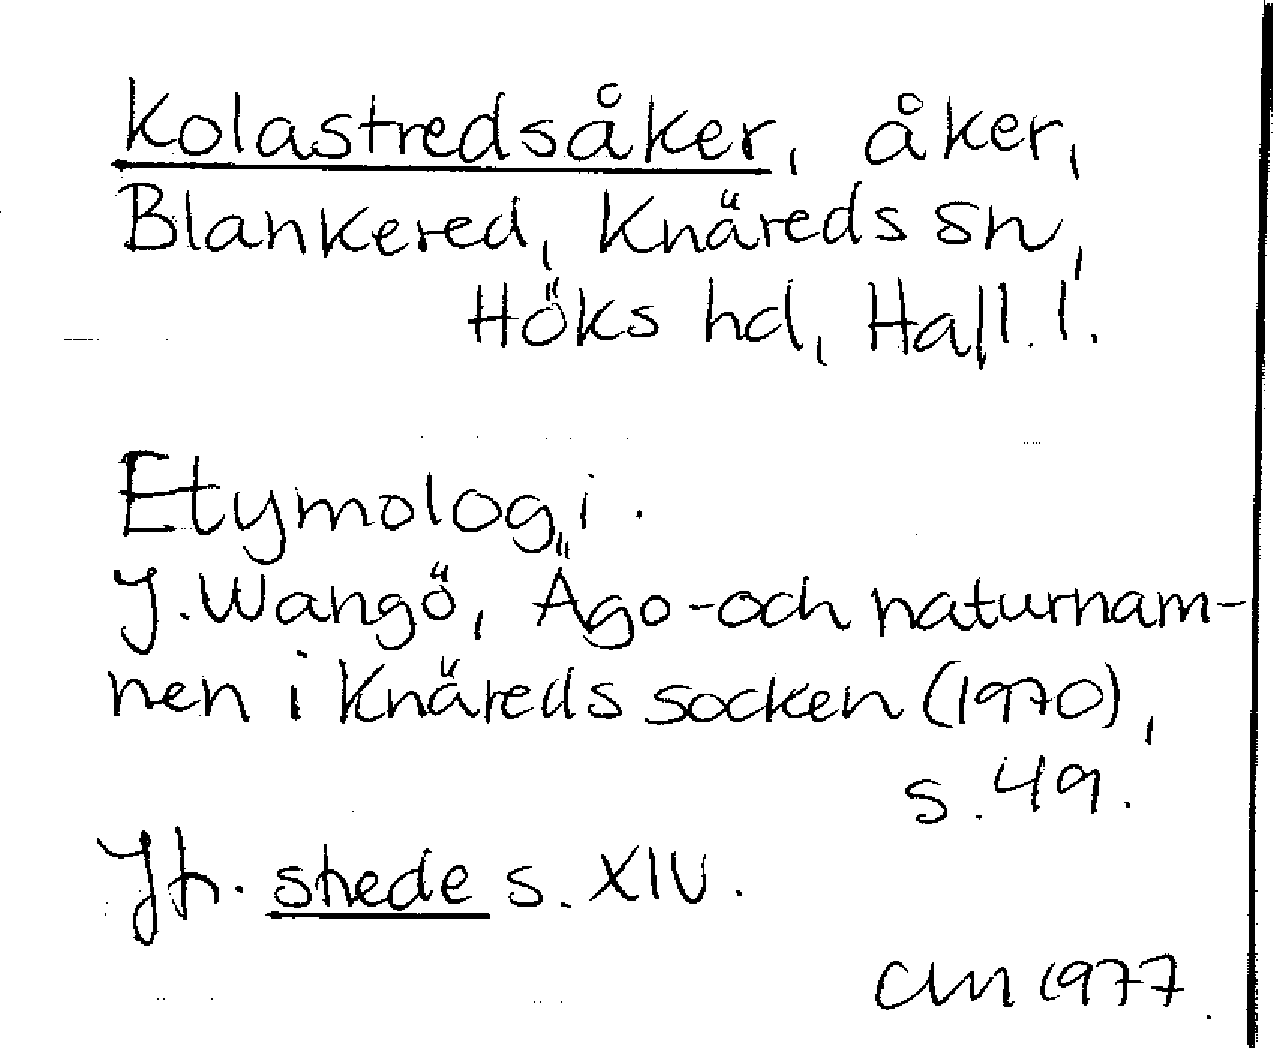 Kolastredsåker, åker,
Blankered, Knäreds sn,
Höks hd, Hall. l.
Etymologi.
J. Wangö, Ägo- och naturnam-
nen i Knäreds socken (1970),
s. 49.
Jfr. stede s. XIV.
CLM 1977.